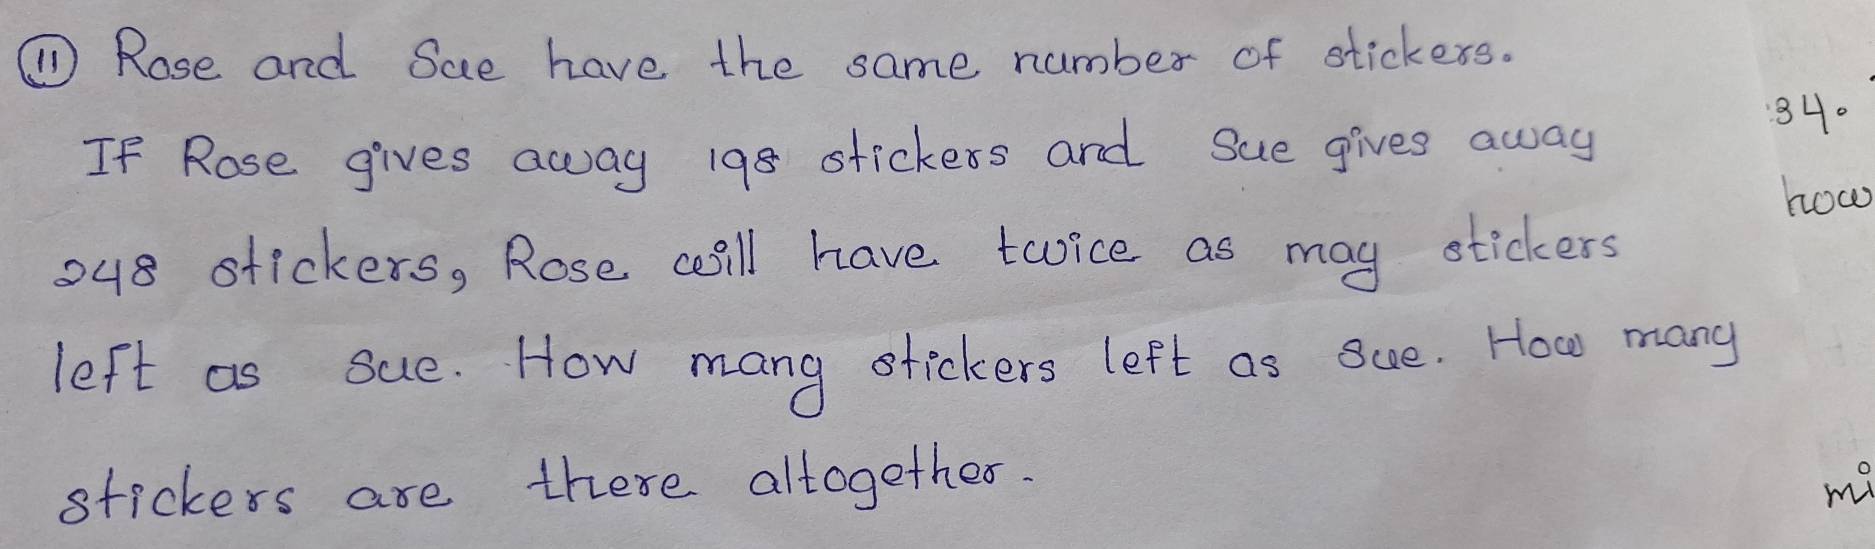 11 Rose and Sue have the same number of stickers.
If Rose gives away 198 stickers and Sue gives away
248 stickers, Rose will have twice as may stickers
left as Sue. How many stickers left as Sue. How many
stickers are there altogether.
34.
how
mi